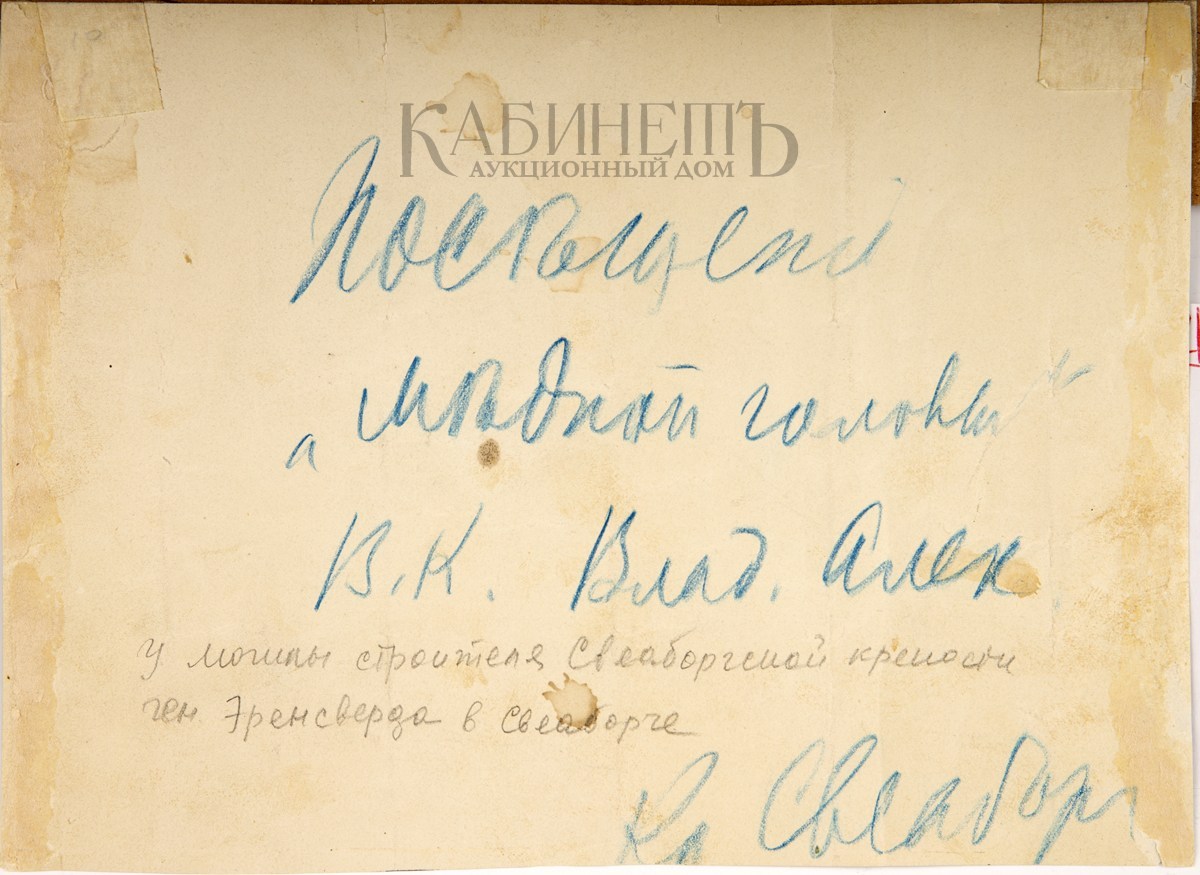 10
КАБИНЕТЪ
АУКЦИОННЫЙ ДОМ
Посѣщенi
„мѣдной головы“
В. К. Влад. Алек
У могилы строителя Свеаборгской крепости
ген Эренсверда в Свеаборге
Кр Свеаборг